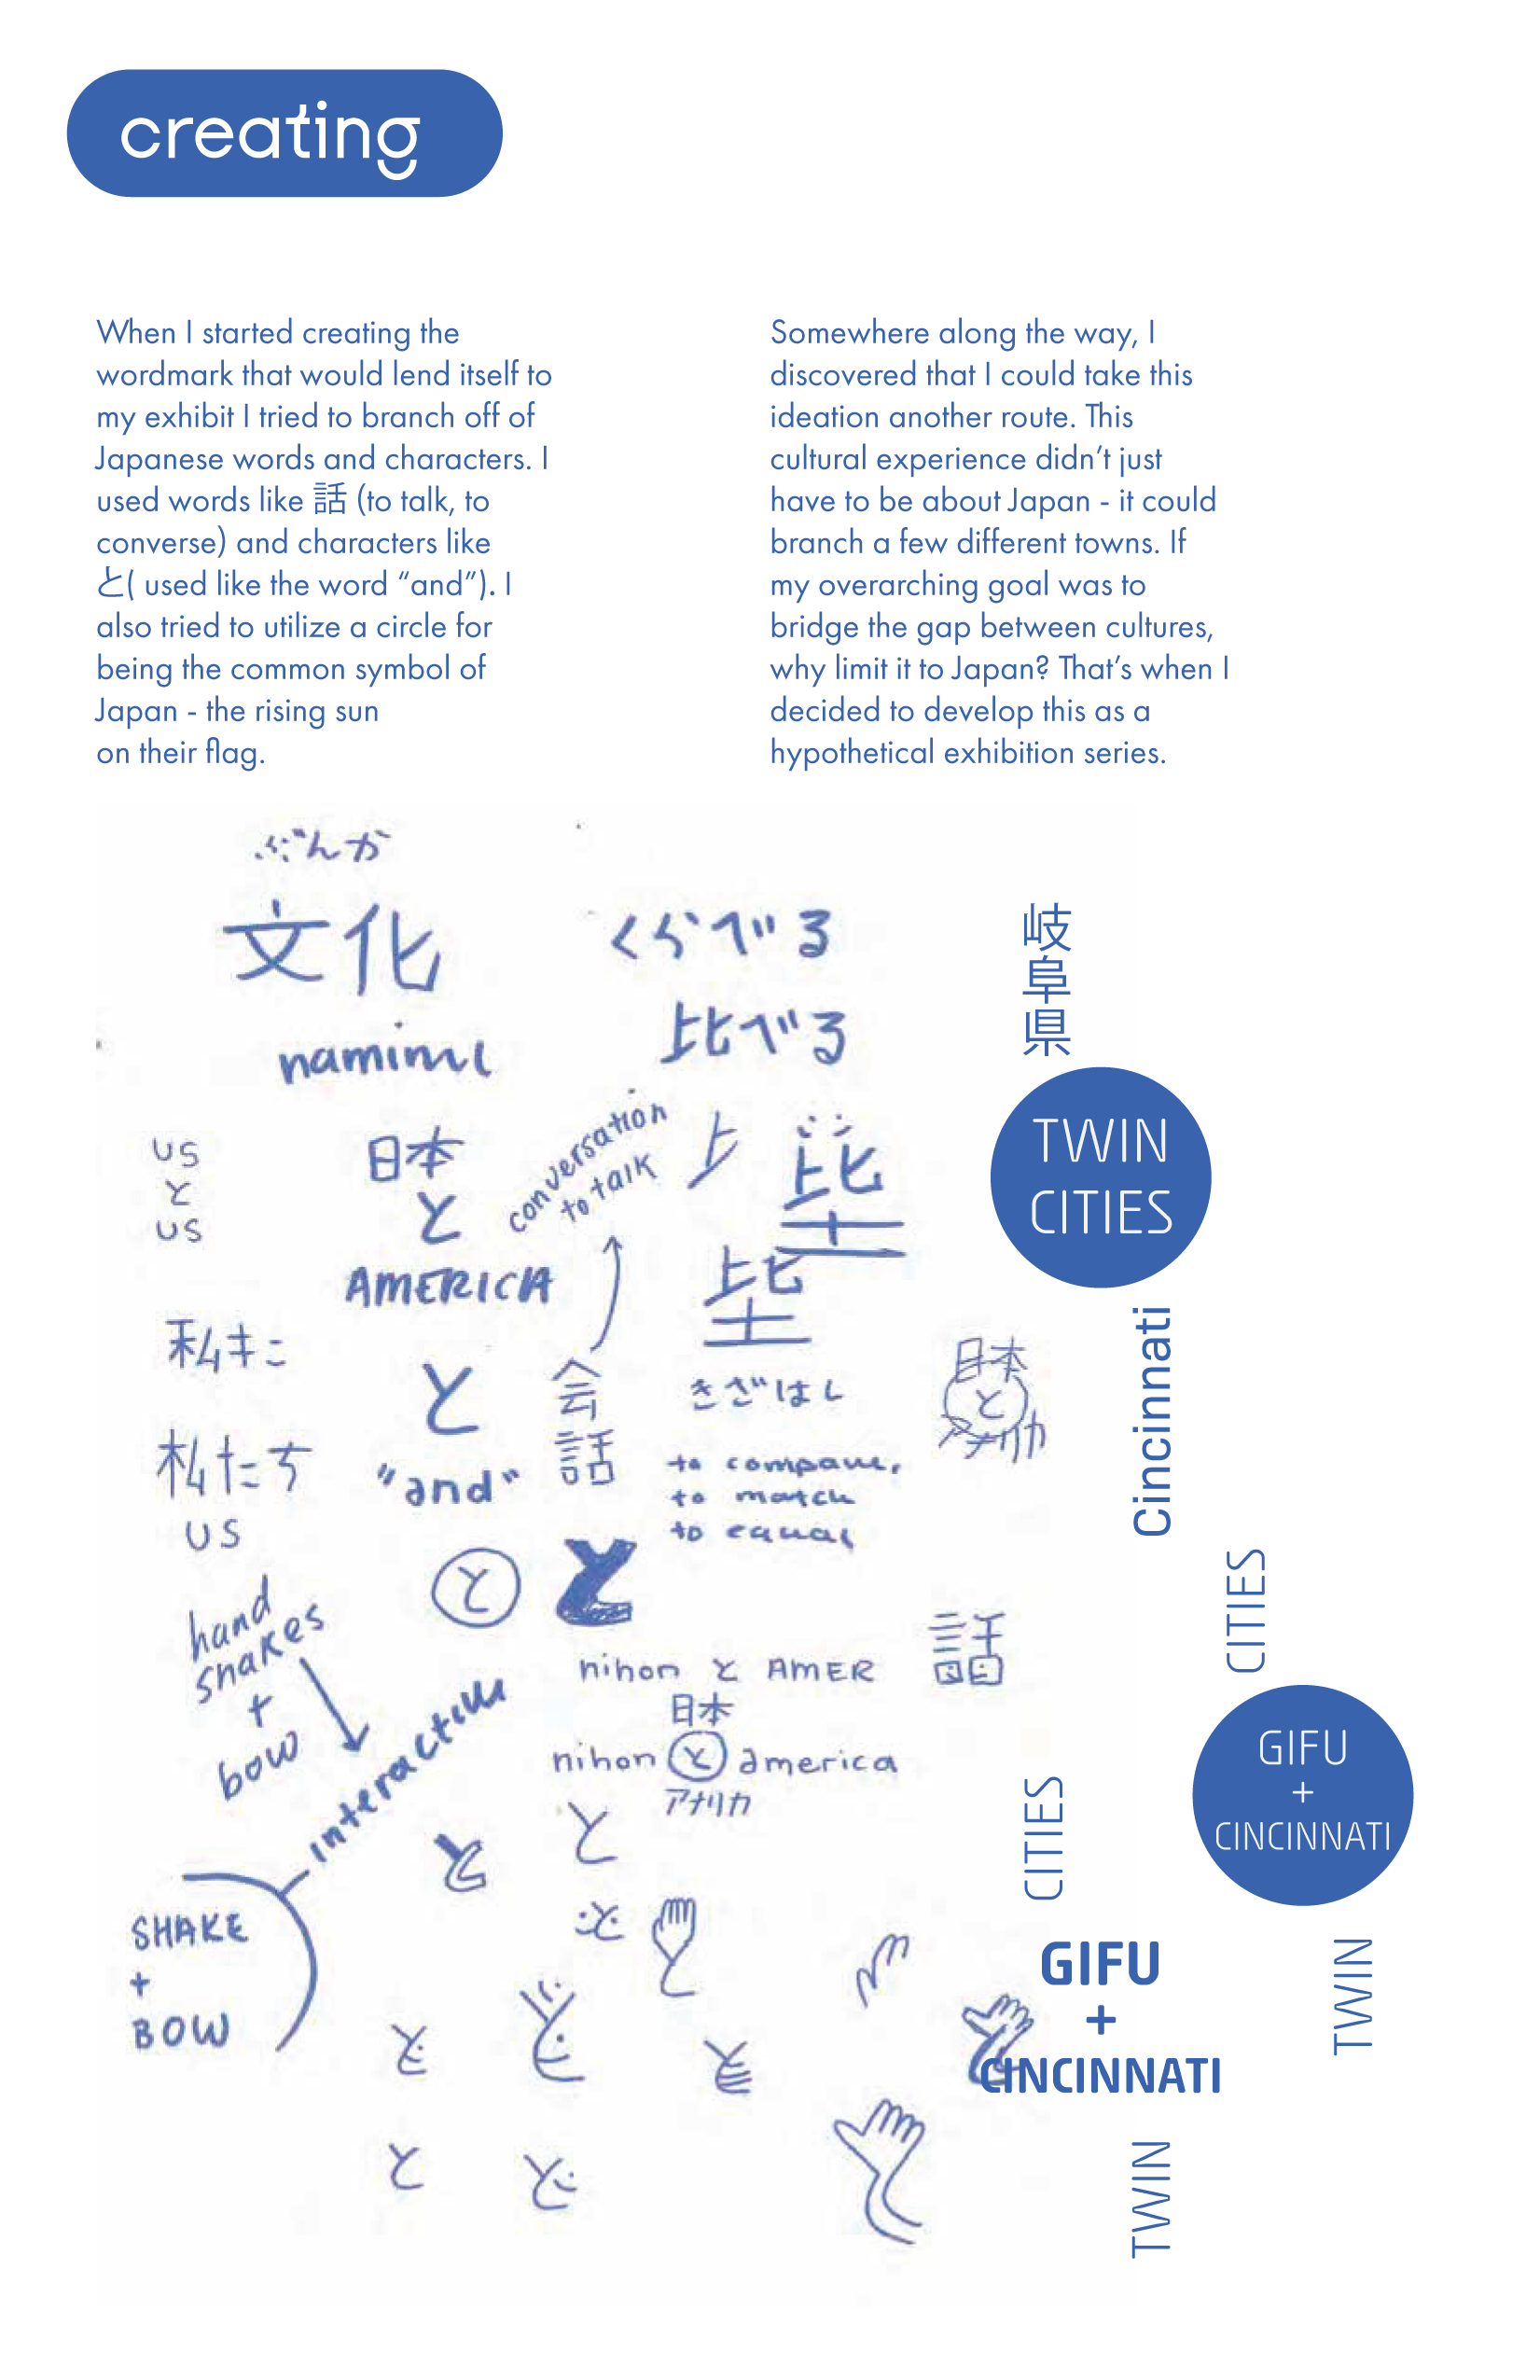 creating
When I started creating the
wordmark that would lend itself to
my exhibit I tried to branch off of
Japanese words and characters. I
used words like 話 (to talk, to
converse) and characters like
と( used like the word “and”). I
also tried to utilize a circle for
being the common symbol of
Japan - the rising sun
on their flag.
Somewhere along the way, I
discovered that I could take this
ideation another route. This
cultural experience didn’t just
have to be about Japan - it could
branch a few different towns. If
my overarching goal was to
bridge the gap between cultures,
why limit it to Japan? That’s when I
decided to develop this as a
hypothetical exhibition series.
ぶんか
文化
namimi
くらべる
比べる
US
と
US
日本
と
AMERICA
conversation
to talk
上
私たち
US
と
"and"
会
話
きざはし
to compare,
to match
to equal
日本
と
と
と
hand
shakes
+
bow
nihon と AMER
日本
nihon と america
アメリカ
interactive
SHAKE
+
BOW
と
と
と
と
と
と
と
と
岐
阜
県
TWIN
CITIES
Cincinnati
CITIES
GIFU
+
CINCINNATI
TWIN
CITIES
GIFU
+
CINCINNATI
TWIN